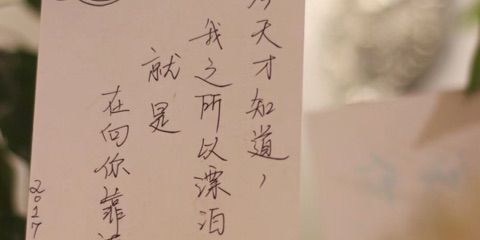 今天才知道，
我之所以漂泊
就是
在向你靠
2017